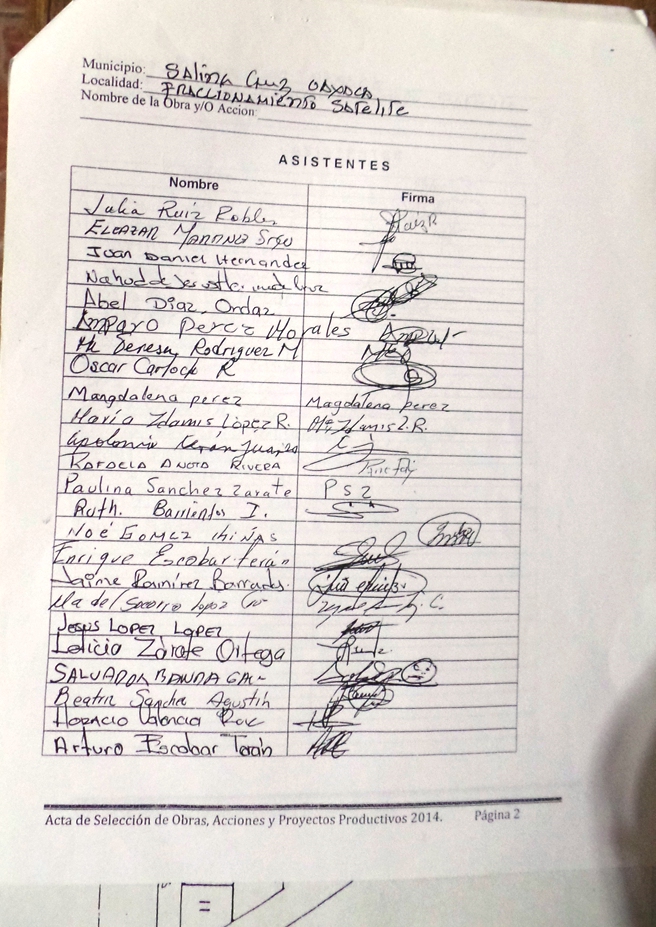 Municipio: SALINA CRUZ OAXACA
Localidad: FRACCIONAMIENTO SATELITE
Nombre de la Obra y/O Accion:
ASISTENTES
Nombre Firma
Julia Ruiz Robles Ruiz R
ELEAZAR
Juan Daniel Hernandez
Abel Diaz, Ordaz
Amparo Perez Morales
Ma Teresa Rodriguez M
Oscar Carlock R
Mangdalena perez Magdalena perez
María Idamis Lòpez R. Ma. Idamis L. R.
Apolonia Terán Juarez
RAFAELA RIVERA
Paulina Sanchez Zarate P S Z
Ruth. Barrientos I.
NOÉ GOMEZ CHIÑAS
Enrique Escobar terán
Jaime Ramírez Barradas.
Ma del Socorro Lopez
JESUS LOPEZ LOPEZ
Leticia Zárate Ortega
SALVADOR BANDA
Beatriz Sanchez Agustín
Horacio Valencia
Arturo Escobar Terán
Acta de Selección de Obras, Acciones y Proyectos Productivos 2014. Página 2